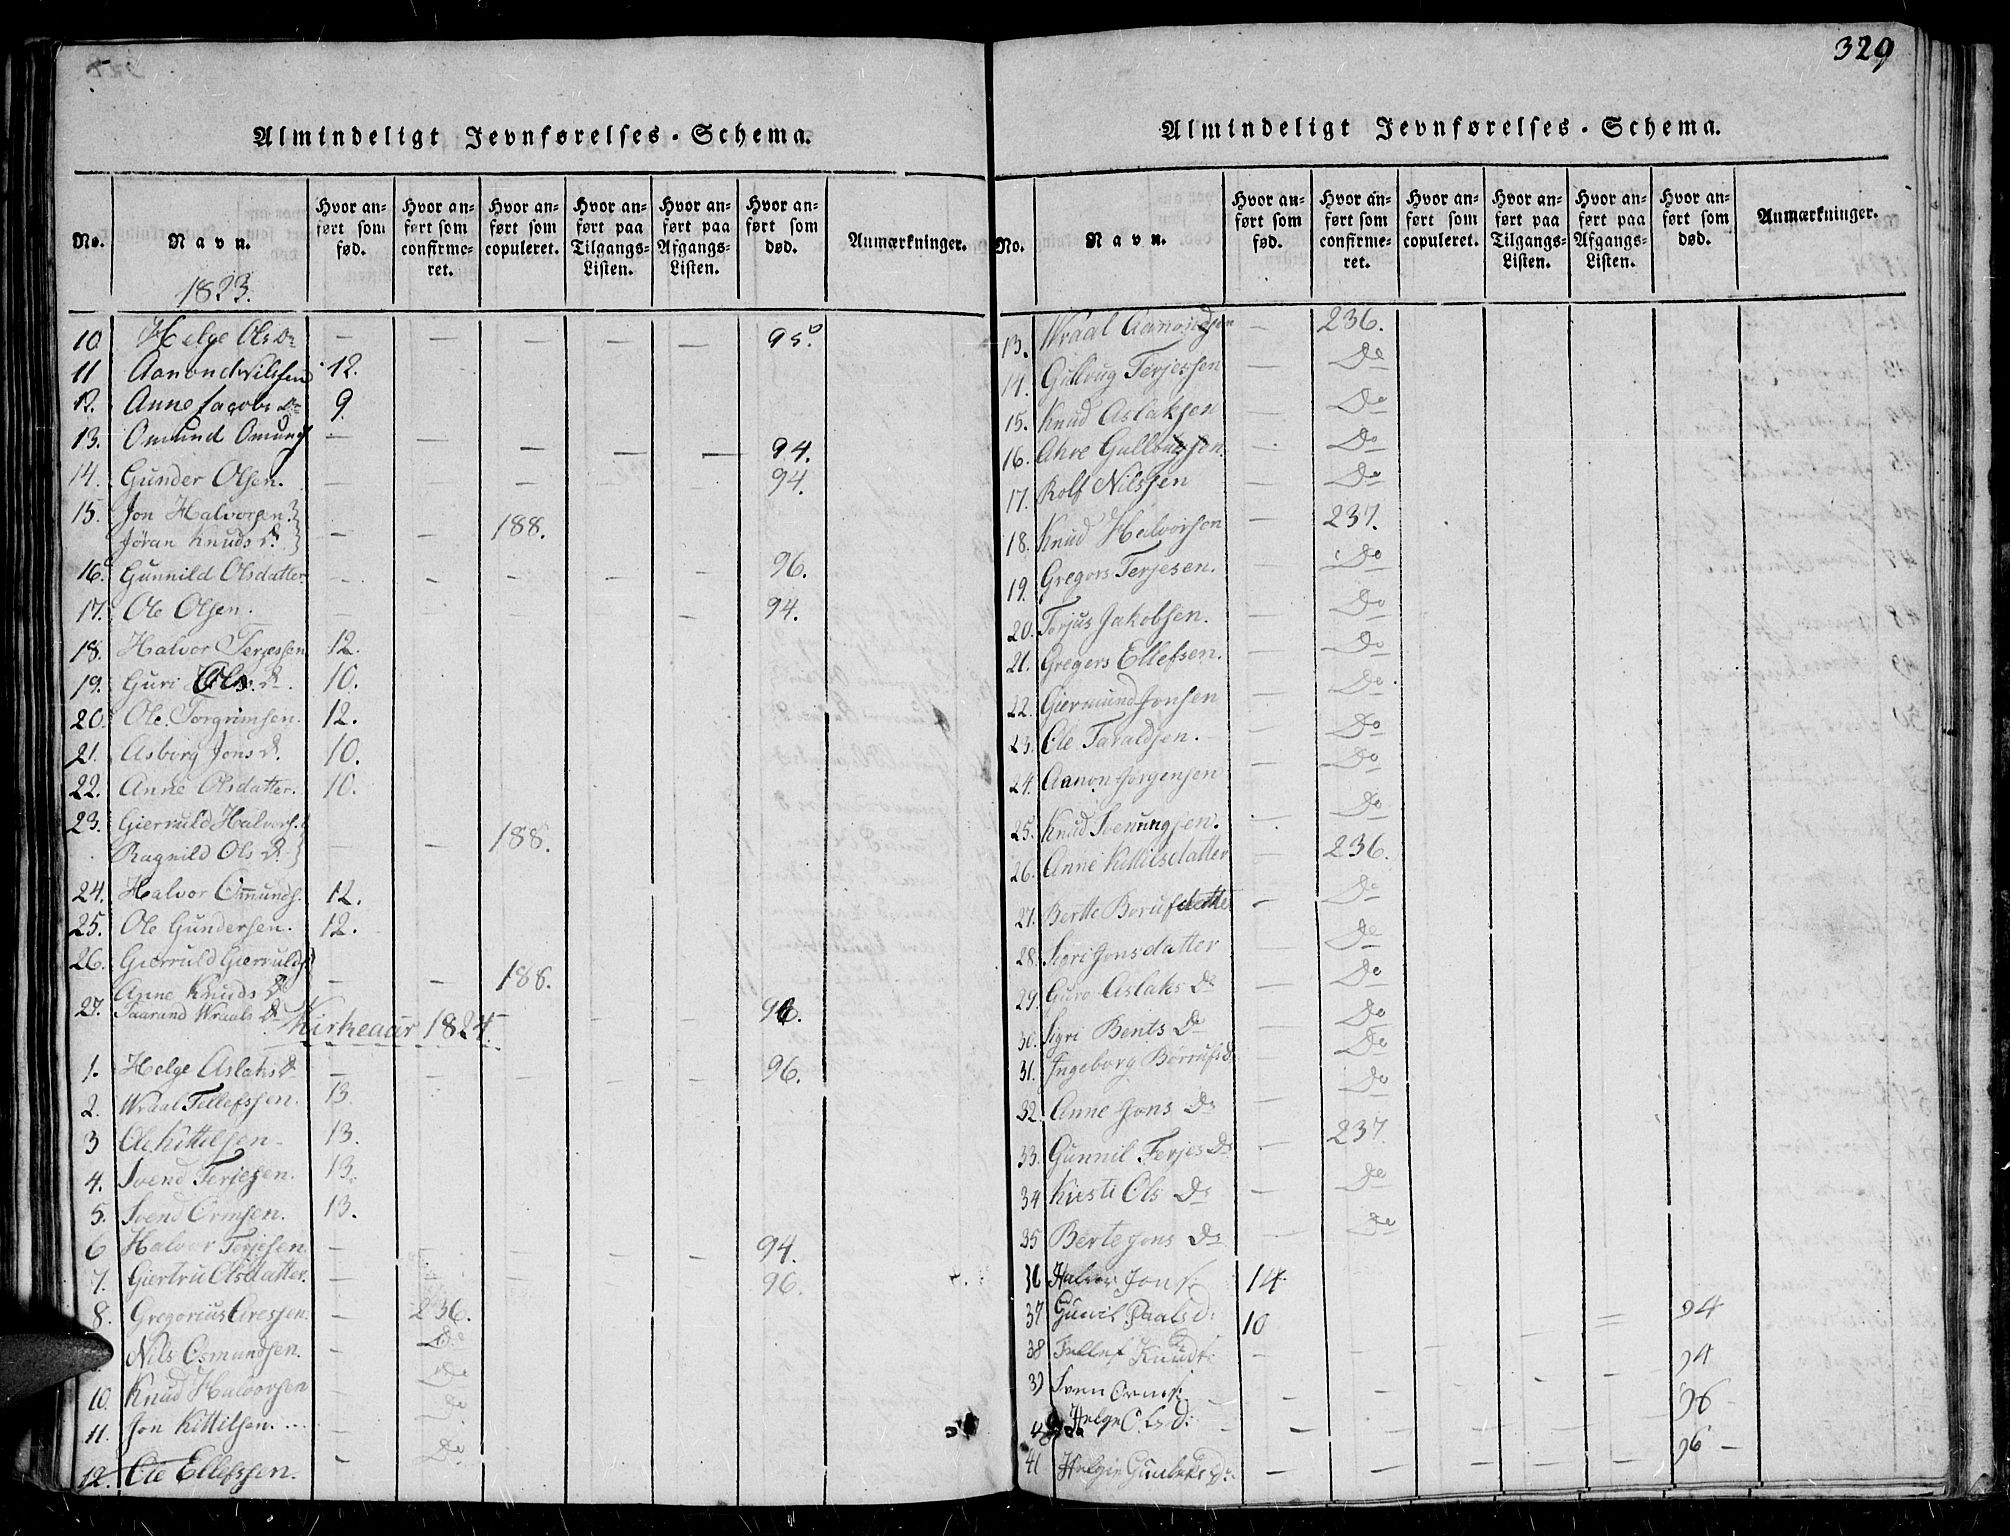 329
Almindeligt Jevnførelses-Schema.
No. Navn. Hvor anført som fød. Hvor anført som confirmeret. Hvor anført som copuleret. Hvor anført paa Tilgangs-Listen. Hvor anført paa Afgangs-Listen. Hvor anført som død. Anmærkninger.
1823.
10. Helge Ols Dr — — — — — 95.
11 Aanond Nilssen 12.
12. Anne Jacobs Dr 9.
13. Omund Omunds — — — — — 94.
14. Gunder Olsen. — — 94.
15. Jon Halvorsen.
Jøran Knuds D. — — 188.
16. Gunnild Olsdatter — — — — — 96.
17. Ole Olsen. — 94.
18. Halvor Terjessen 12.
19. Guri Ols. D. 10.
20. Ole Torgrimsen. 12.
21. Asborg Jons D. 10.
22. Anne Olsdatter. 10.
23. Gierruld Halvors.
Ragnild Ols D. — — 188.
24. Halvor Omunds. 12.
25. Ole Gundersen. 12.
26. Gierruld Gierrulds
Anne Knuds D. — — 188.
27. Taarand Wraals D. — — — 96.
Kirkeaar 1824.
1. Helge Aslaks D. — — — — — 96.
2. Wraal Tellefssen. 13.
3 Ole Kittelsen 13.
4. Svend Teriesen. 13.
5. Svend Ormsen. 13.
6 Halvor Terjesen. — — — 94.
7. Giertru Olsdatter. — — — 96.
8. Gregorius Aresen — 236.
Nils Osmundsen. — Do
10. Knud Halvorsen — Do
11. Jon Kittilsen. — Do
12. Ole Ellefssen. — Do
Almindeligt Jevnførelses-Schema.
No. Navn. Hvor anført som fød. Hvor anført som confirmeret. Hvor anført som copuleret. Hvor anført paa Tilgangs-Listen. Hvor anført paa Afgangs-Listen. Hvor anført som død. Anmærkninger.
13. Wraal Aanondsen — 236.
14. Gullbug Terjessen — Do
15. Knud Aslaksen — Do
16. Ahre Gullbugsen. — Do
17. Rolf Nilssen — Do
18. Knud Helvorsen — 237.
19. Gregors Terjesen. — Do
20. Terjus Jakobsen. — Do
21. Gregers Ellefsen. — Do
22. Giermund Jonsen — Do
23. Ole Taraldsen. — Do
24. Aanon Jorgensen — Do
25. Knud Svenungsen. — Do
26. Anne Kittilsdatter — 236.
27. Bertte Borufdatter — Do
28. Sigri Jonsdatter — Do
29. Guro Aslaks Dr — Do
30. Sigri Bents Dr — Do
31. Ingeborg Børrufsd. — Do
32. Anne Jons Dr — Do
33. Gunnil Terjes Dr — 237.
34 Kirsti Ols Dr — Do
35 Berte Jons Dr — Do
36 Halvor Jons. 14.
37 Gunil Paals D: 10 94
38 Tellef Knuds: — — — 94
39 Sven Orms: — — — — — 96
40 Helge Ols D: — 96 —
41 Helgie Gunleks D: — — — — —